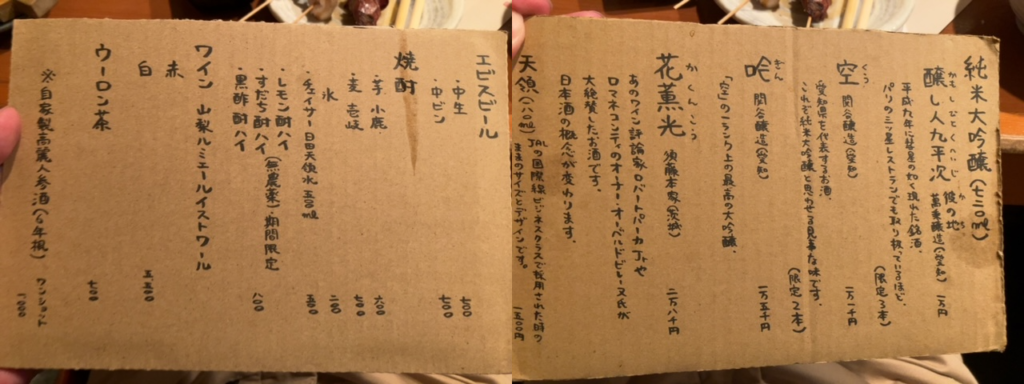 エビスビール
・中生 七〇〇
・中ビン 七〇〇
焼酎
・芋 小鹿 六〇〇
・麦 壱岐 七〇〇
氷 二〇〇
チェイサー 日田天領水 五〇〇ml 五〇〇
・レモン酎ハイ (無農薬)・期間限定
・すだち酎ハイ
・黒酢酎ハイ 八〇〇
ワイン 山梨ルミエールイストワール
赤
白 五、五〇〇
ウーロン茶 七〇〇
※自家製高麗人参酒(6年根) ワンショット
純米大吟醸(七二〇ml)
かもしびとくへいじ
醸し人九平次 彼の地 萬乗醸造(愛知) 一万円
平成九年に彗星の如く現れた銘酒。
パリの三ッ星レストランでも取り扱っているほど。
(限定3本)
くう
空 関谷醸造(愛知) 一万一千円
愛知県を代表するお酒。
これぞ純米大吟醸と思わせる見事な味です。
(限定2本)
ぎん
吟 関谷醸造(愛知) 一万五千円
「空」の一ランク上の最高の大吟醸。
かくんこう
花薫光 須藤本家(茨城) 二万八千円
あのワイン評論家ロバートパーカーJrや
ロマネコンティのオーナーオーベルドビレーヌ氏が
大絶賛したお酒です。
日本酒の概念が変わります。
天領(一八〇ml) 一五〇〇円
JALの国際線ビジネスクラスで採用された時の
ままのサイズとデザインです。